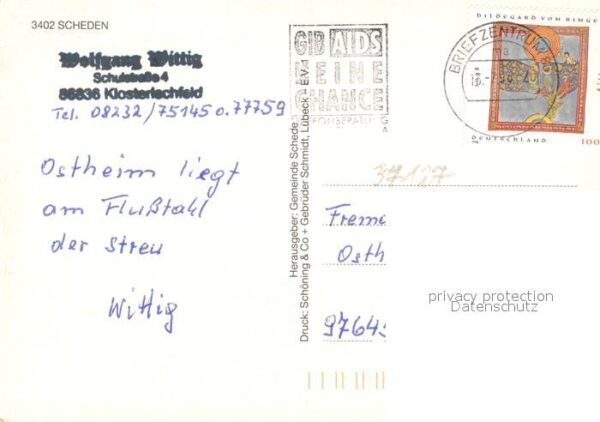 3402 SCHEDEN
Wolfgang Wittig
Schulstraße 4
86836 Klosterlechfeld
Tel. 08232/75145 o. 77759
Ostheim liegt
am Flußtahl
der Streu
Wittig
Herausgeber: Gemeinde Schede
Druck: Schöning & Co + Gebrüder Schmidt, Lübeck
GIB AIDS
KEINE
CHANCE
BRIEFZENTRUM
HILDEGARD VON BINGE
DEUTSCHLAND
100
37127
Freme
Osth
9764
privacy protection
Datenschutz